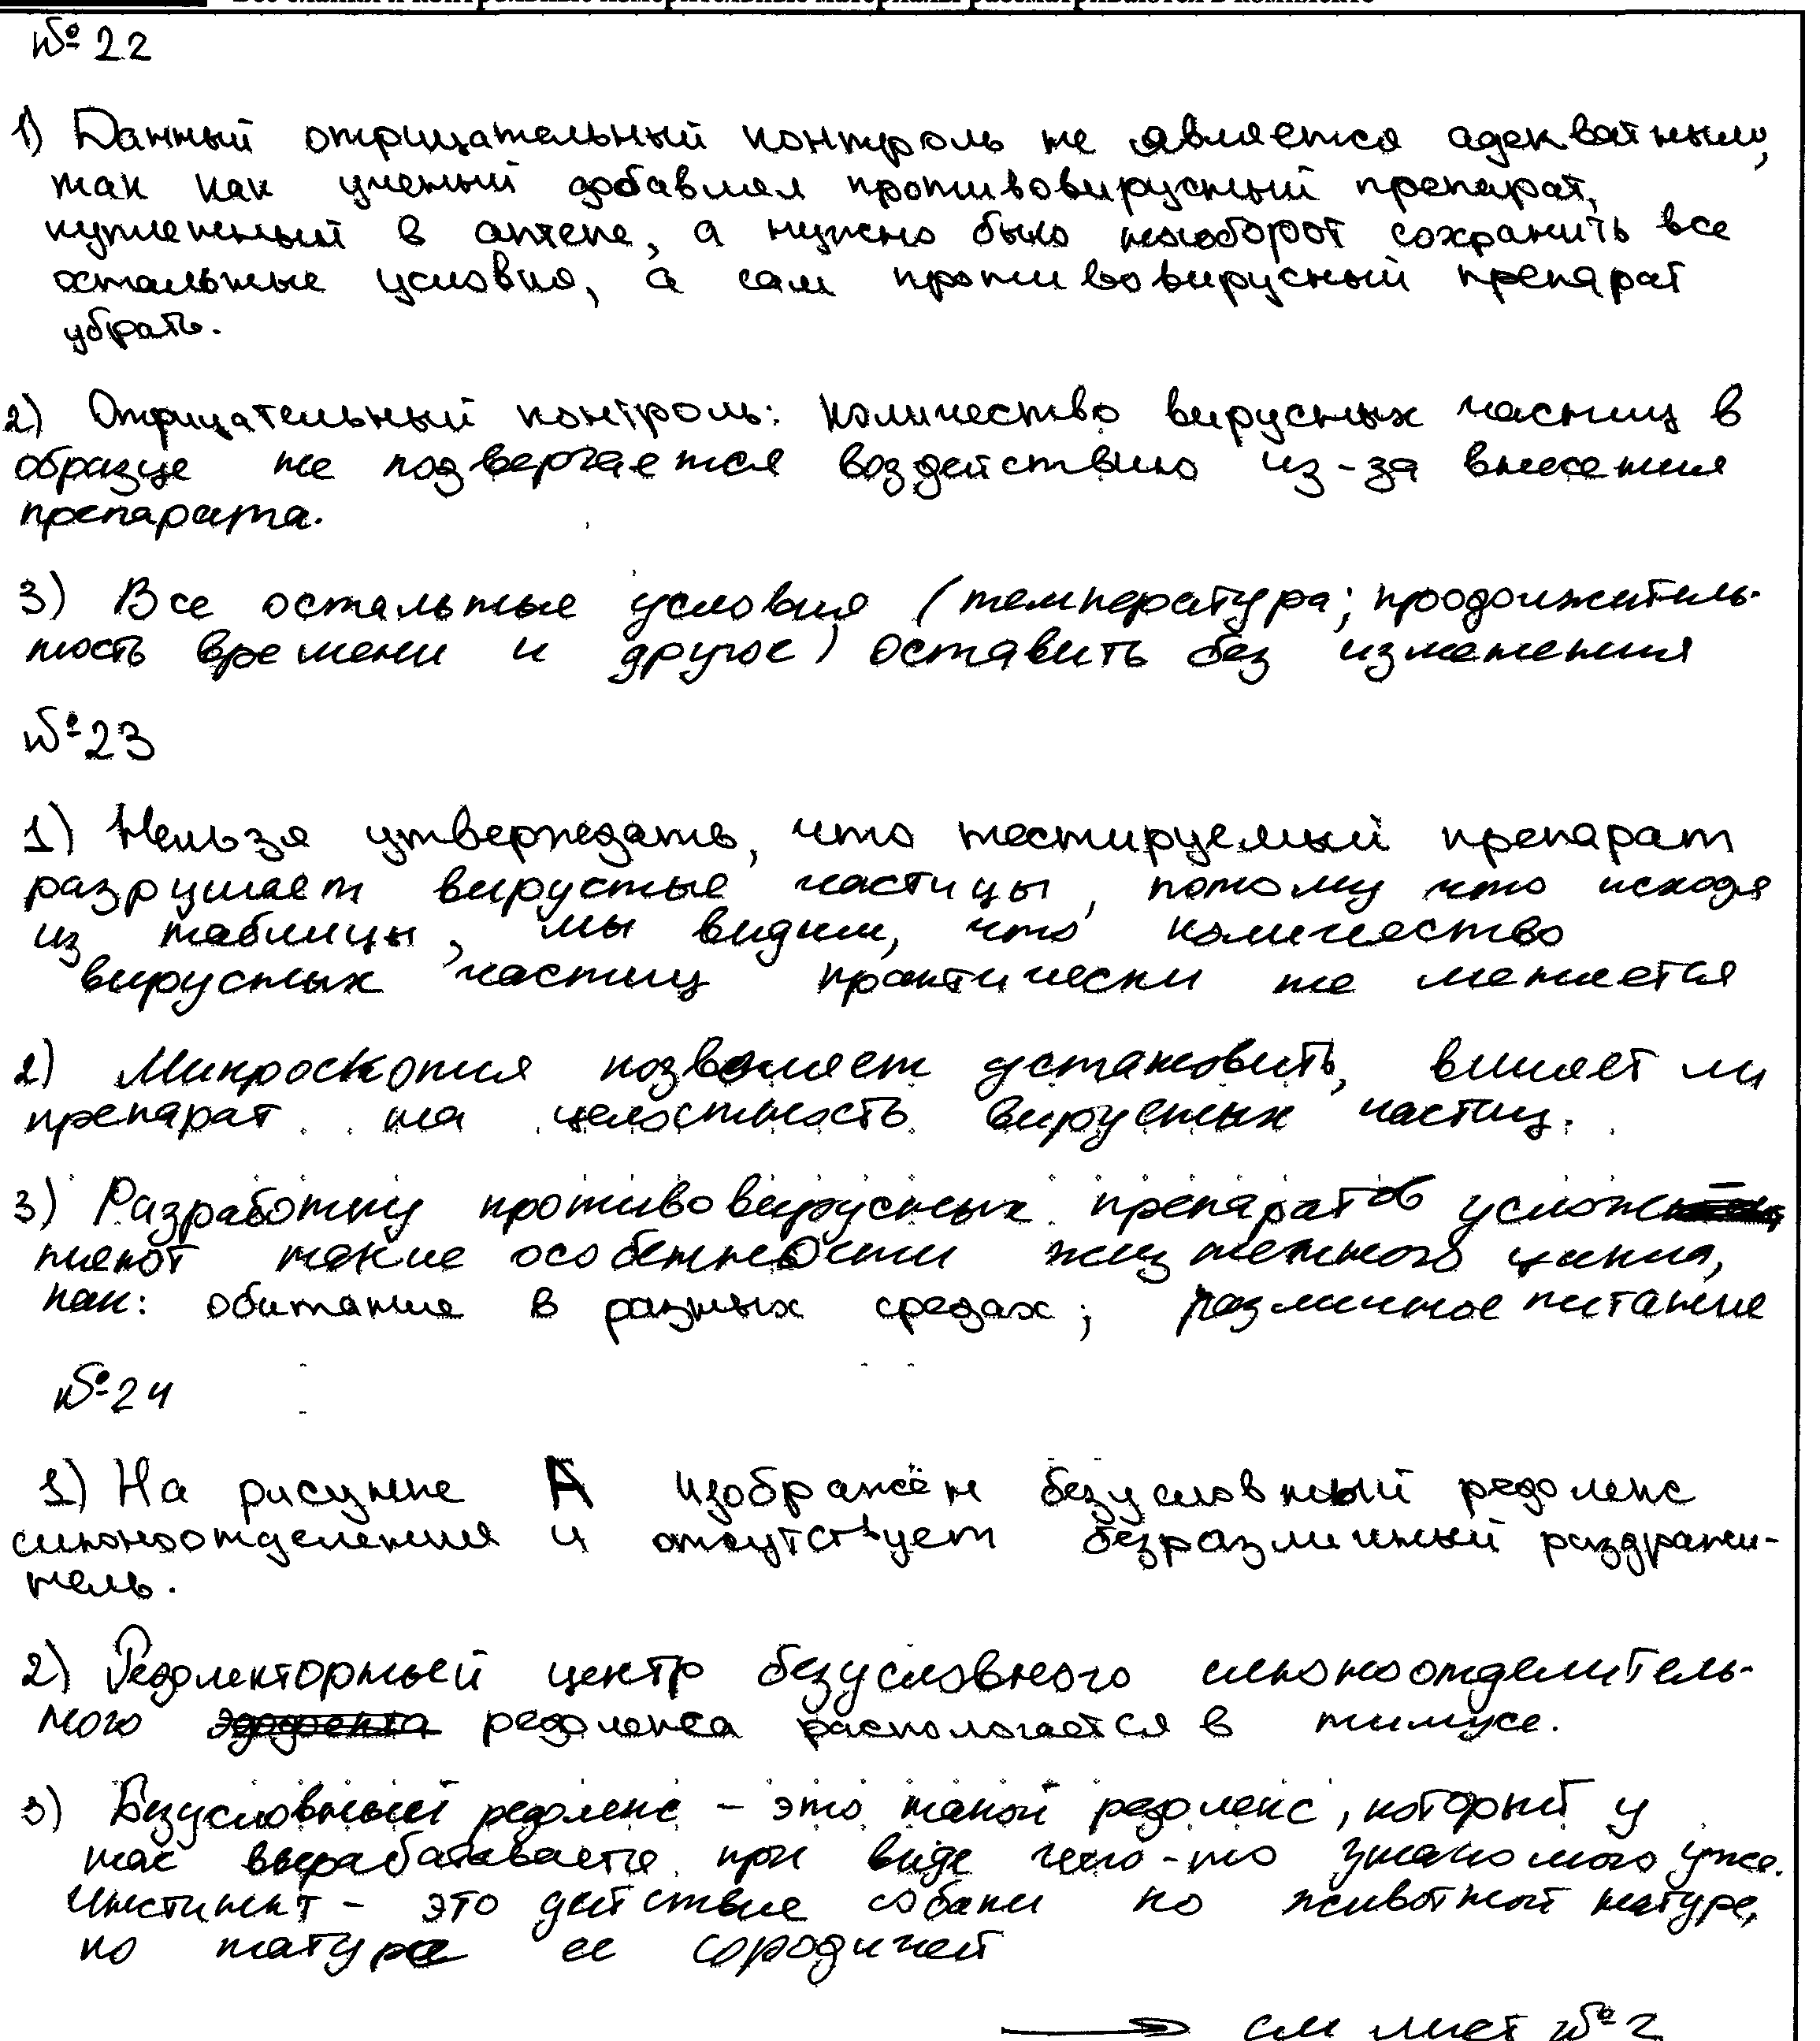 № 22
1) Данный отрицательный контроль не является адекватным,
так как ученый добавлял противовирусный препарат,
купленный в аптеке, а нужно было наоборот сохранить все
остальные условия, а сам противовирусный препарат
убрать.
2) Отрицательный контроль: количество вирусных частиц в
образце не подвергается воздействию из-за внесения
препарата.
3) Все остальные условия (температура; продолжитель-
ность времени и другое) оставить без изменения
№ 23
1) Нельзя утверждать, что тестируемый препарат
разрушает вирусные частицы, потому что исходя
из таблицы, мы видим, что количество
вирусных частиц практически не меняется
2) Микроскопия позволяет установить, влияет ли
препарат на целостность вирусных частиц.
3) Разработку противовирусных препаратов услож
няют такие особенности жизненного цикла,
как: обитание в разных средах; различное питание
№ 24
1) На рисунке А изображён безусловный рефлекс
слюноотделения и отсутствует безразличный раздражи-
тель.
2) Рефлекторный центр безусловного слюноотделитель-
ного рефлекса распологается в тимусе.
3) Безусловный рефлекс – это такой рефлекс, который у
нас вырабатывается при виде чего-то знакомого уже.
Инстинкт – это действие собаки по животной натуре,
по натуре ее сородичей
→ см лист № 2